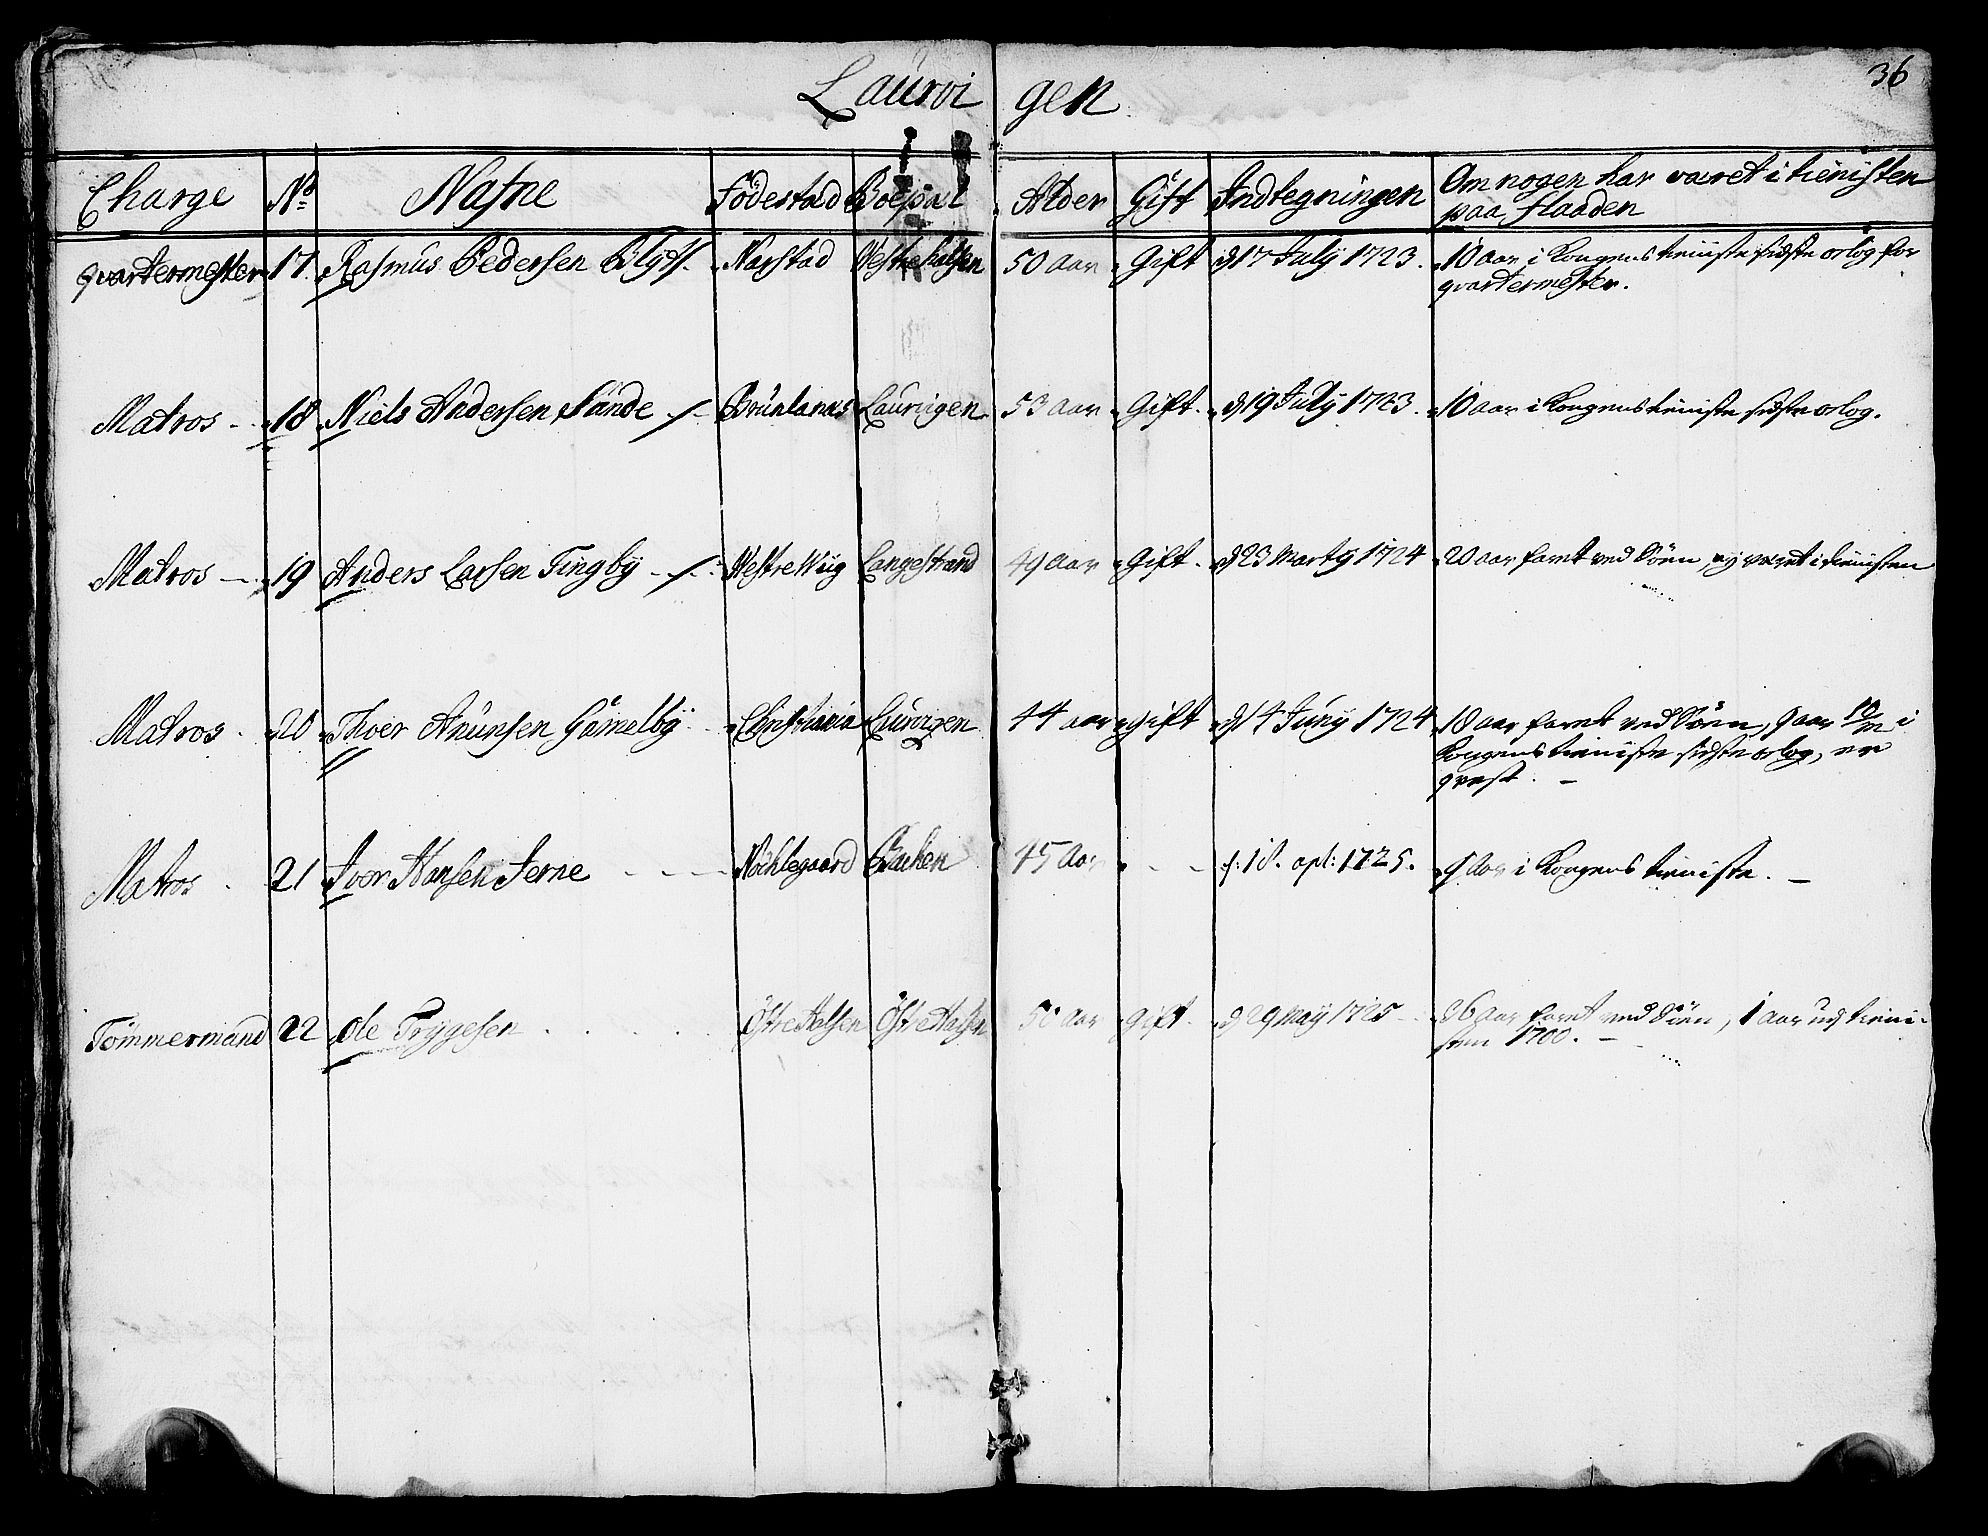 36
Laurvigen
Charge No Nafne Födestad Boepæl Alder Gift Indtegningen Om nogen har været i tienisten
paa Flaaden
qvartermester 17. Rasmus Pedersen Blyt Nafstad Westrehalsen 50 aar Gift d 17 July 1723. 10 aar i Kongens tieniste sidste orlog for
qvartermester.
Matros 18 Niels Andersen Sande Brunlanæs Laurvigen 53 aar Gift. d 19 July 1723. 10 aar i Kongens tieniste sidste orlog.
Matros 19 Anders Larsen Tingby Westre Wiig Langestrand 49 aar Gift. d 23 Marty 1724 20 aar faret ved Söen, ej været i tienisten
Matros 20 Thoer Anunsen Gamelby Christiania Laurvigen 44 aar gift d 14 Juny 1724 18 aar faret ved Söen, 9 aar 10/m i
Kongens tieniste sidste orlog, er
qvest.
Matros 21 Iver Hansen Ierne Nöchlegaard Bachen 45 Aar d: 18. apl: 1725. 9 Aar i Kongens tieniste.
Tömmermand 22 Ole Trÿgesen Östre Halsen Östre Halsen aar gift d 29 Maÿ 1725 26 aar faret ved Söen, 1 aar udj tieni-
sten 1700.